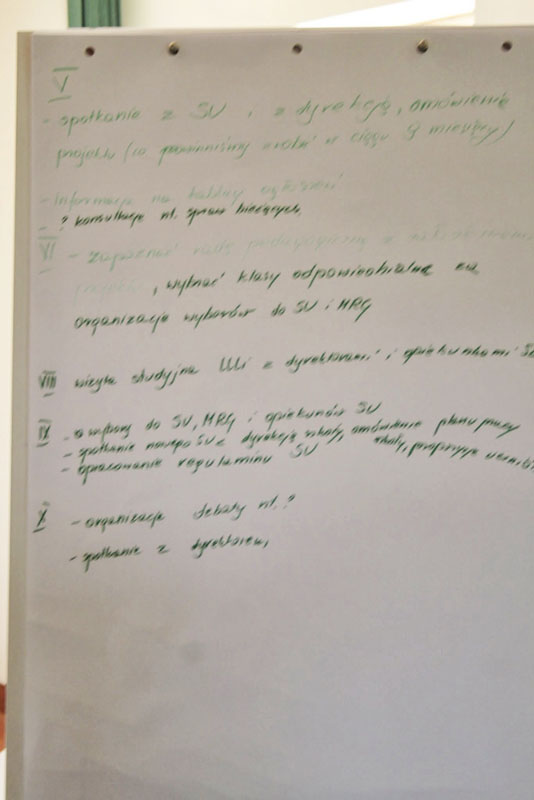 V
- spotkanie z SU i z dyrekcją, omówienie
projektu (co powinniśmy zrobić w ciągu 9 miesięcy)
- Informacja na
- ? konsultacje nt. spraw bieżących,
VI - zapoznać radę pedagogiczną z
projektu, wybrać klasy odpowiedzialne za
organizacje wyborów do SU i MRG
VIII wizyta studyjna z dyrektorami i opiekunami
IX - wybory do SU, MRG i opiekunów SU
- spotkanie nowego SU z dyrekcją szkoły, omówienie planu pracy
szkoły, propozycje
- opracowanie regulaminu SU
X - organizacja debaty nt. ?
- spotkanie z dyrektorem,